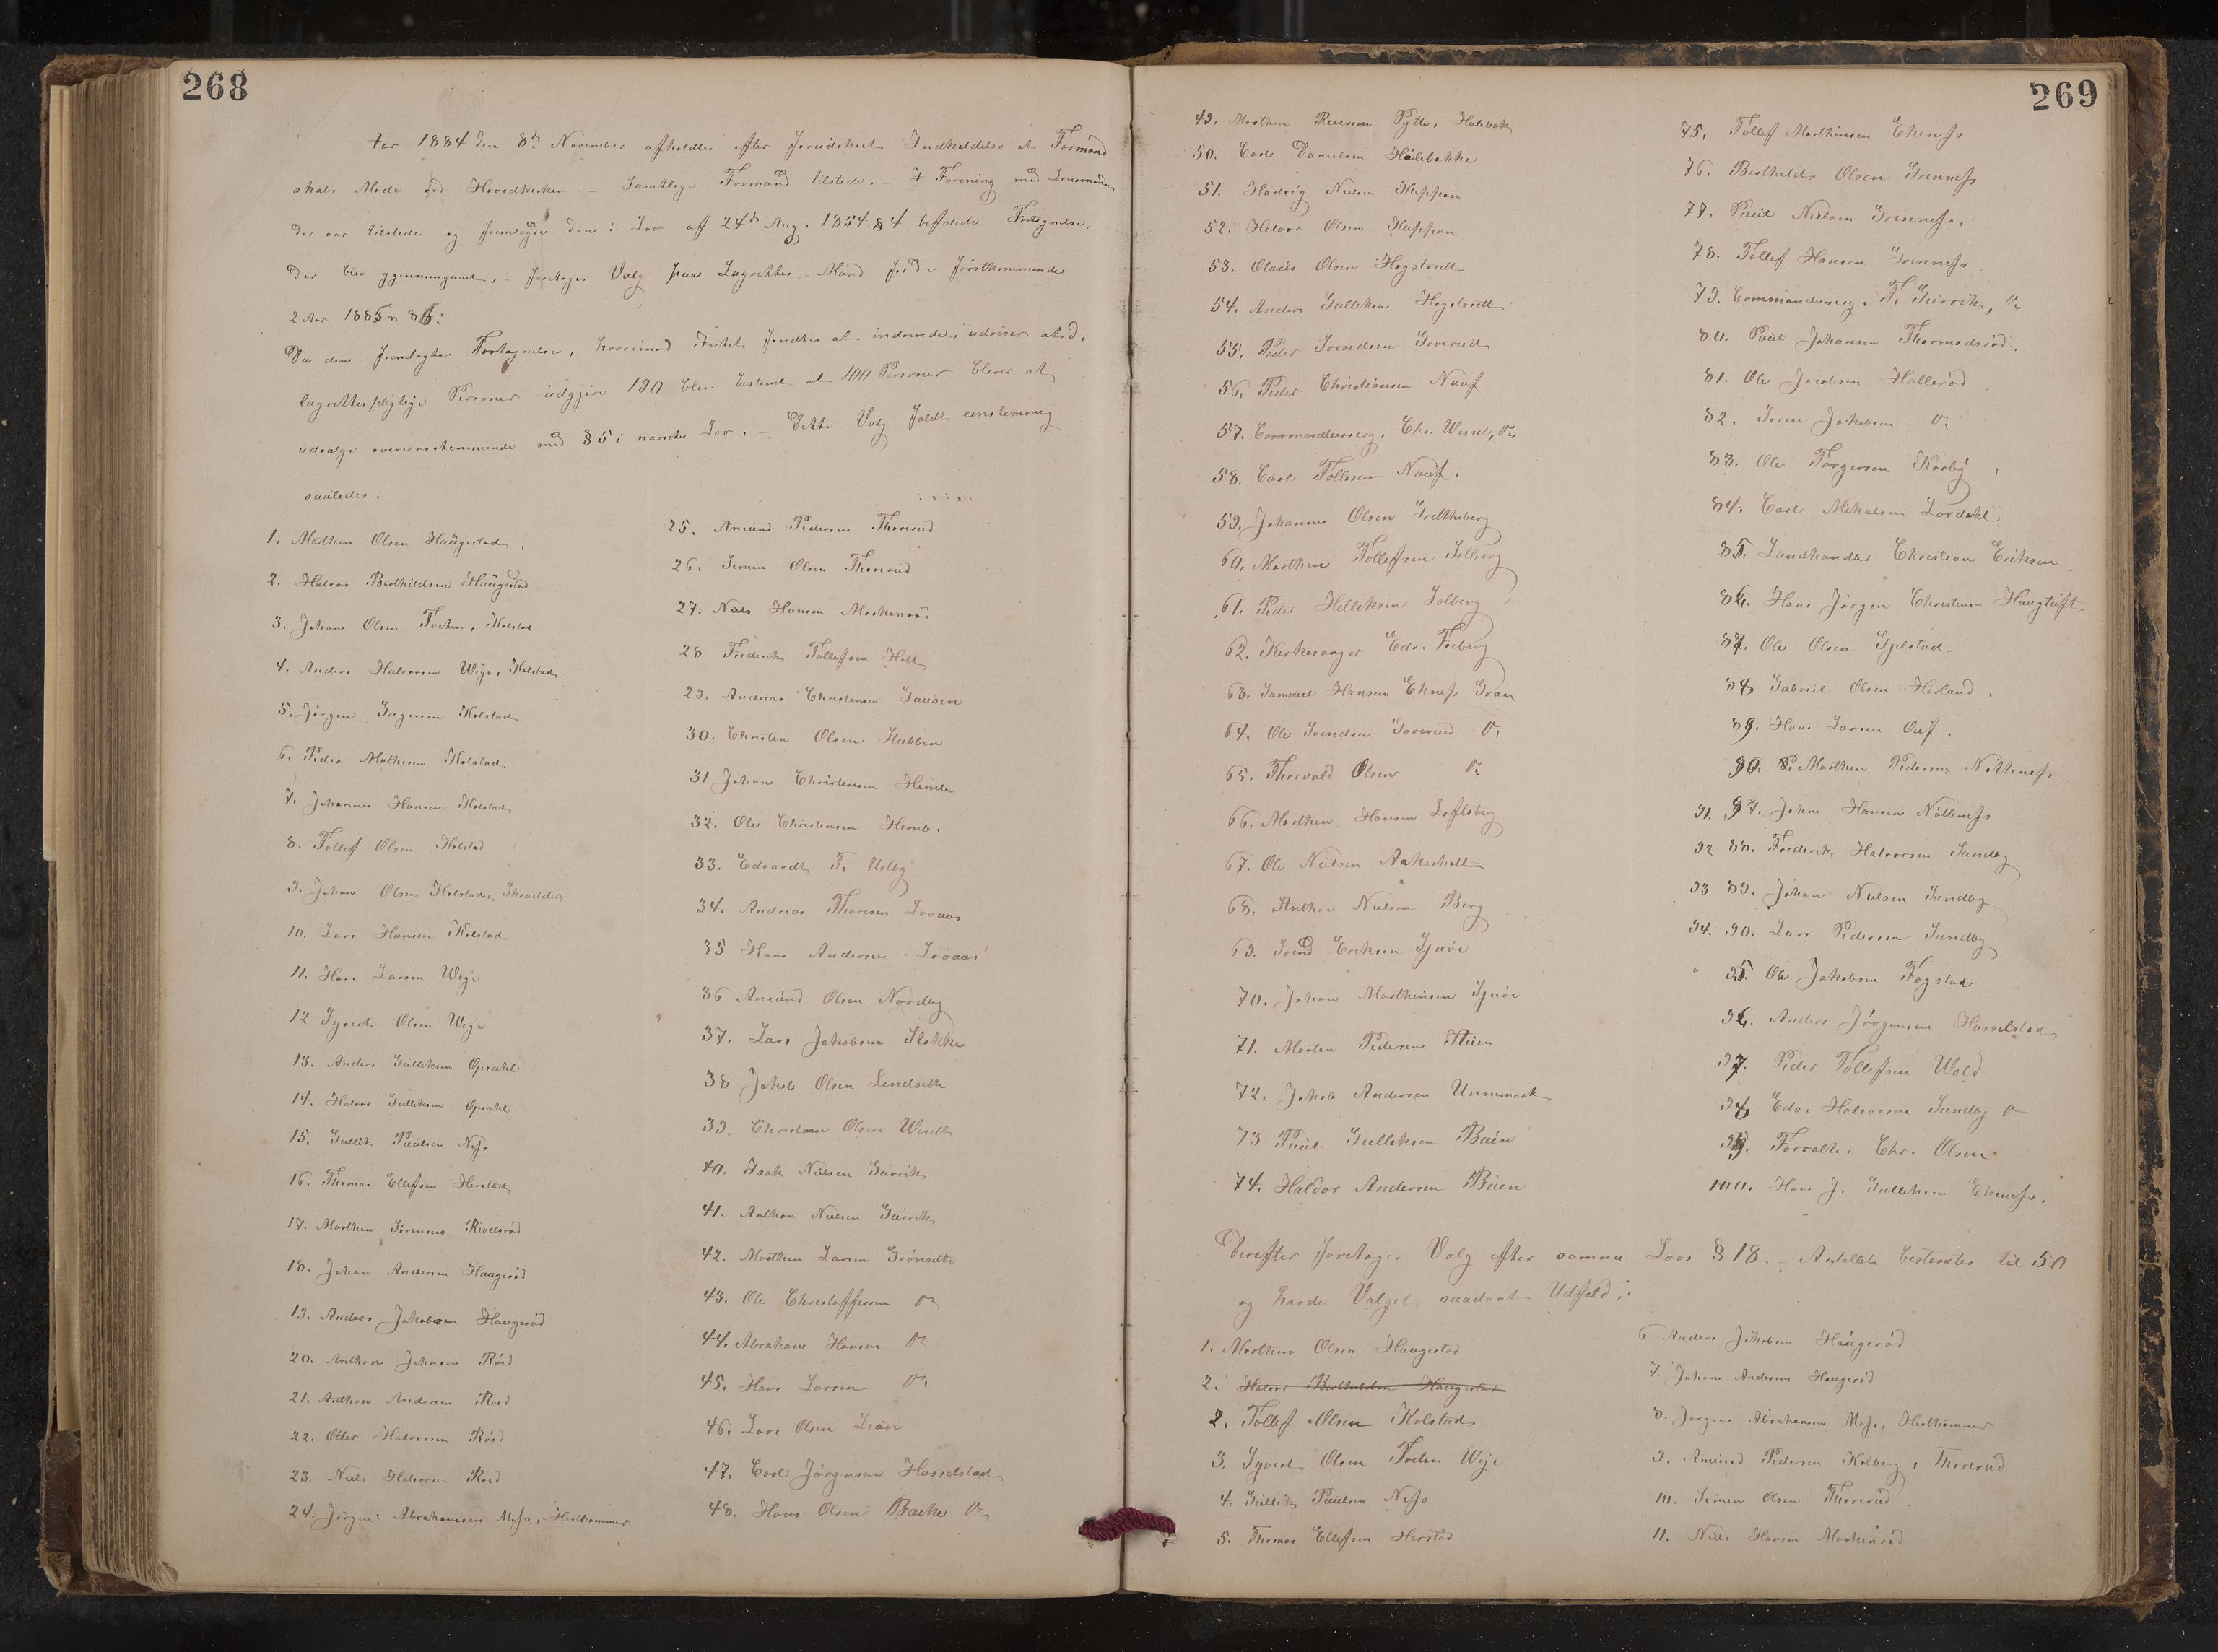 268
Aar 1884 den 8de November afholdtes efter forudskeet Indkaldelse et Formand
skabs Møde ved Hovedkirken. – Samtlige Formænd tilstede. – I Forening med Lensmanden
der var tilstede og fremlagde den i Lov af 24de Aug. 1854 § 4 befalede Fortegnelse,
der blev gjennemgaaet, – foretoges Valg paa Lagrettes-Mænd for de førstkommende
2 Aar 1885 og 86:
Da den fremlagte Fortegnelse, hvorimod Intet fandtes at indvende, udviser at d.
lagrettespligtige Personer udgjøre 190 blev bestemt at 100 Personer bliver at
udvælge overensstemmende med § 5 i nævnte Lov. – Dette Valg faldt eenstemmig
saaledes:
1. Marthin Olsen Haugestad,
2. Halvor Berthildsen Haugestad
3. Johan Olsen Foeten, Kolstad
4. Anders Halvorsen Wige, Kolstad
5. Jørgen Gregersen Kolstad
6. Peder Mathisen Kolstad
7. Johannes Hansen Kolstad
8. Tollef Olsen Kolstad
9. Johan Olsen Kolstad, Skrædder
10. Lars Hansen Kolstad
11. Hans Larsen Wege
12 Syvert Olsen Wege
13. Anders Gulliksen Opsahl
14. Halvor Gulliksen Opsahl
15. Gullik Paulsen Næs
16. Thomas Ellefsen Herstad
17. Marthin Sørensen Rivelsrød
18. Johan Andersen Haugerød
19. Anders Jakobsen Haugerød
20. Anthon Johnsen Røed
21. Anthon Andersen Roed
22. Otter Halvorsen Røed
23. Niels Halvorsen Roed
24. Jørgen Abrahamsen Moss, Hesthammer
25. Amund Pedersen Thorerud
26. Simen Olsen Thorerud
27. Niels Hansen Markenrød
28 Frederik Tollefsen Holt
29. Andreas Christensen Gausen
30. Christen Olsen Stubben
31 Johan Christensen Hemb
32. Ole Christensen Hemb.
33. Edvardt T. Uslby
34. Andreas Thoresen Lovaas
35 Hans Andersen Lovaas
36 Amund Olsen Nordby
37. Lars Jakobsen Stokke
38 Jakob Olsen Lindseth
39. Christian Olsen Wiseth
40. Isak Nielsen Gurrik
41. Anthon Nielsen Gurrik
42. Marthin Larsen Grønseth
43. Ole Christoffersen do
44. Abraham Hansen do
45. Hans Larsen do
46. Lars Olsen Lian
47. Carl Jørgensen Hasselstad
48. Hans Olsen Backe do
269
49. Marthin Reiersen Pytte, Holebak
50. Carl Danielsen Holebakke
51. Hartvig Nielsen Keppan
52. Halvor Olsen Keppan
53. Olaus Olsen Hogstvedt
54. Anders Gulliksen Hogstvedt
55. Peder Svendsen Sverud
56. Peder Christiansen Nauf
57. Commandeursrg. Chr. Wessel, do
58. Carl Tollesen Nauf,
59. Johannes Olsen Grettheberg
60. Marthin Tollefsen Solberg
61. Peder Helliksen Solberg
62. Kirkesanger Edv. Freberg
63. Samuel Hansen Ekness Gran
64. Ole Svendsen Sverud do
65. Thorvald Olsen do
66. Marthin Hansen Loftsberg
67. Ole Nielsen Aakerholt
68. Anthon Nielsen Berg
69. Svend Eriksen Sjuve
70. Johan Marthinsen Sjuve
71. Morten Pedersen Stuen
72. Jakob Andersen Unnemark
73 Paul Gulliksen Buen
74. Haldor Andersen Buen
75. Tollef Marthinsen Ekeness
76. Berthild Olsen Grenness
77. Paul Nielsen Grenness.
78. Tollef Hansen Grenness
79. Commandeursrg. T. Gurrik, do
80. Paul Johansen Thormodsrød.
81. Ole Jacobsen Hallerød
82. Søren Jakobsen do
83. Ole Torgersen Kroby
84. Carl Mikalsen Lørdahl
85. Landhandler Christian Eriksen
86. Hans Jørgen Christensen Haugtuft
87. Ole Olsen Gjelstad
88 Gabriel Olsen Herland.
89. Hans Larsen Auf.
90. Marthin Pedersen Nøttness
91. 87. Johan Hansen Nøttness
92 88. Frederik Halvorsen Sundby
93 89. Johan Nielsen Sundby
94. 90. Lars Pedersen Sundby
95 Ole Jakobsen Fogstad
96. Anders Jørgensen Hasselstad
97. Peder Tollefsen Wold
98 Edv. Halvorsen Sundby do
99. Forvalter Chr. Olsen
100. Hans J. Gulliksen Ekeness.
Derefter foretoges Valg efter samme Lovs § 18. – Antallet bestemtes til 50
og havde Valget saadant Udfald:
1. Marthin Olsen Haugestad
2. Halvor Berthildsen Haugestad
2. Tollef Olsen Kolstad
3. Syvert Olsen Foeten Wege
4. Gullik Paulsen Næss
5. Thomas Ellefsen Herstad
6 Anders Jakobsen Haugerød
7. Johan Andersen Haugerød
8. Jørgen Abrahamsen Moss, Hesthammer
9. Amund Pedersen Kolberg, Thorerud
10. Simen Olsen Thorerud
11. Niels Hansen Markenrød